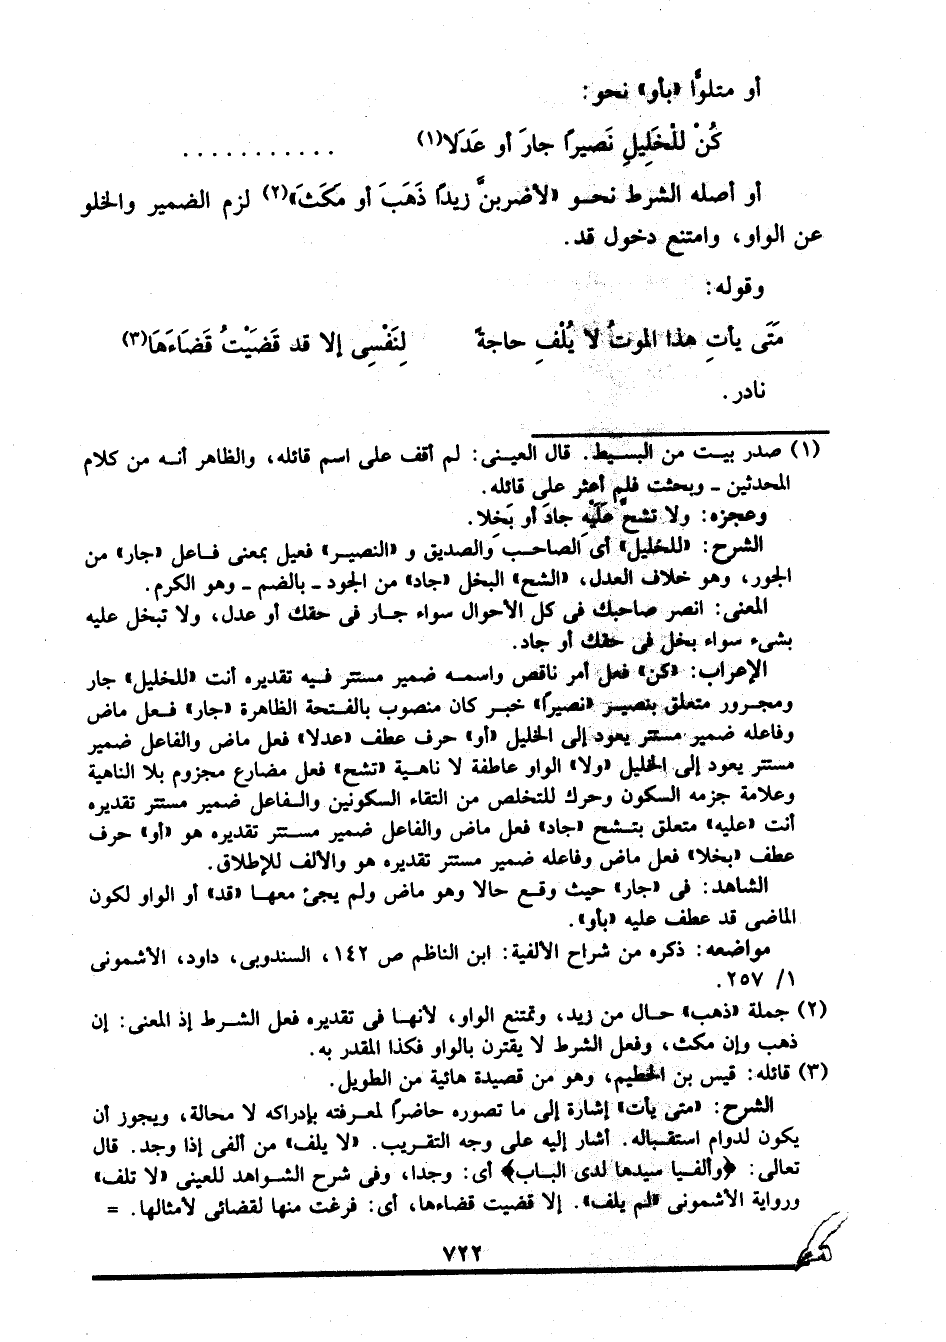 أو متلوًّا «بأو» نحو:
كُنْ للْخَلِيلِ نَصيرًا جارَ أو عَدَلا(١) ...........
أو أصله الشرط نحو «لأضربنَّ زيدًا ذَهَبَ أو مَكَثَ»(٢) لزم الضمير والخلو
عن الواو، وامتنع دخول قد.
وقوله:
مَتَى يأتِ هذا الموتُ لا يُلْفِ حاجةً لِنَفْسِى إلا قد قَضَيْتُ قَضَاءَهَا(٣)
نادر.
(١) صدر بيت من البسيط. قال العينى: لم أقف على اسم قائله، والظاهر أنه من كلام
المحدثين ـ وبحثت فلم أعثر على قائله.
وعجزه: ولا تشحَّ عَلَيْهِ جادَ أو بَخِلا.
الشرح: «للخليل» أى الصاحب والصديق و «النصير» فعيل بمعنى فاعل «جار» من
الجور، وهو خلاف العدل، «الشح» البخل «جاد» من الجود ـ بالضم ـ وهو الكرم.
المعنى: انصر صاحبك فى كل الأحوال سواء جار فى حقك أو عدل، ولا تبخل عليه
بشىء سواء بخل فى حقك أو جاد.
الإعراب: «كن» فعل أمر ناقص واسمه ضمير مستتر فيه تقديره أنت «للخليل» جار
ومجرور متعلق بنصير «نصيرًا» خبر كان منصوب بالفتحة الظاهرة «جار» فعل ماض
وفاعله ضمير مستتر يعود إلى الخليل «أو» حرف عطف «عدلا» فعل ماض والفاعل ضمير
مستتر يعود إلى الخليل «ولا» الواو عاطفة لا ناهية «تشح» فعل مضارع مجزوم بلا الناهية
وعلامة جزمه السكون وحرك للتخلص من التقاء السكونين والفاعل ضمير مستتر تقديره
أنت «عليه» متعلق بتشح «جاد» فعل ماض والفاعل ضمير مستتر تقديره هو «أو» حرف
عطف «بخلا» فعل ماض وفاعله ضمير مستتر تقديره هو والألف للإطلاق.
الشاهد: فى «جار» حيث وقع حالا وهو ماض ولم يجئ معها «قد» أو الواو لكون
الماضى قد عطف عليه «بأو».
مواضعه: ذكره من شراح الألفية: ابن الناظم ص ١٤٢، السندوبى، داود، الأشمونى
١/ ٢٥٧.
(٢) جملة «ذهب» حال من زيد، وتمتنع الواو، لأنها فى تقديره فعل الشرط إذ المعنى: إن
ذهب وإن مكث، وفعل الشرط لا يقترن بالواو فكذا المقدر به.
(٣) قائله: قيس بن الخطيم، وهو من قصيدة هائية من الطويل.
الشرح: «متى يأت» إشارة إلى ما تصوره حاضرًا لمعرفته بإدراكه لا محالة، ويجوز أن
يكون لدوام استقباله. أشار إليه على وجه التقريب. «لا يلف» من ألفى إذا وجد. قال
تعالى: ﴿وألفيا سيدها لدى الباب﴾ أى: وجدا، وفى شرح الشواهد للعينى «لا تلف»
ورواية الأشمونى «لم يلف». إلا قضيت قضاءها، أى: فرغت منها لقضائى لأمثالها. =
٧٢٢